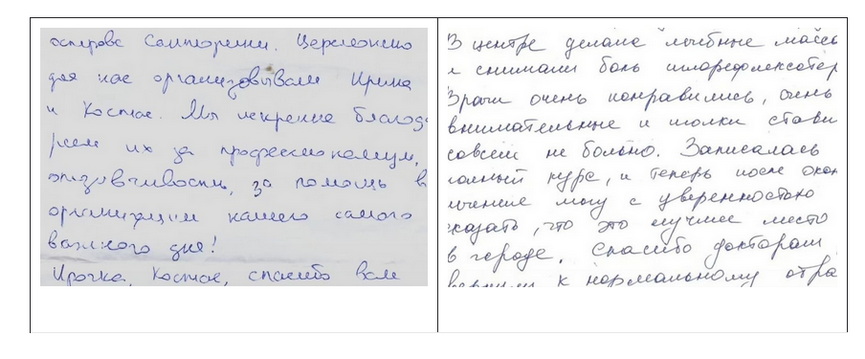 острове Санторини. Церемонию
для нас организовывали Ирина
и Костас. Мы искренне благода
рим их за профессионализм,
отзывчивость, за помощь в
организации нашего самого
важного дня!
Ирочка, Костас, спасибо вам
В центре делала лечебные масс
и снимали боль иглорефлексотер
Врачи очень понравились, очень
внимательные и иголки стави
совсем не больно. Записалась
полный курс, и теперь после окон
лечения могу с уверенностью
сказать, что это лучшее место
в городе. Спасибо докторам
к нормальному отра